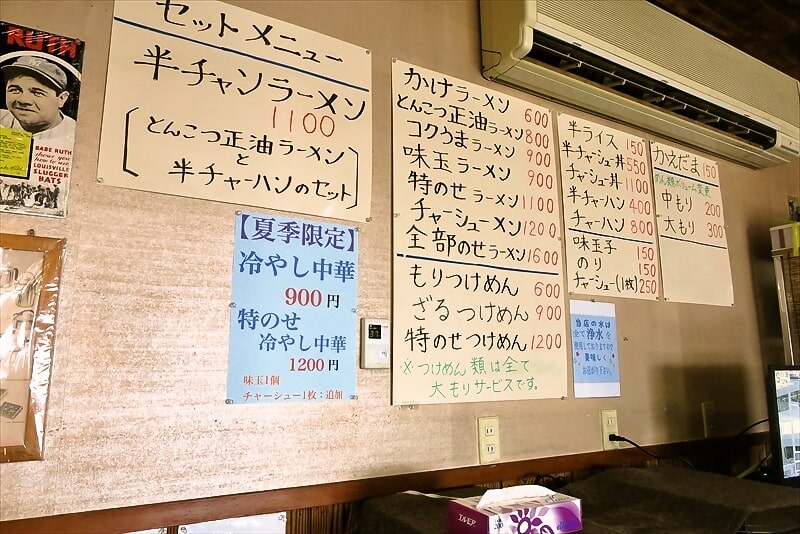 RUTH
BABE RUTH
shows you
how to use
LOUISVILLE
SLUGGER
HATS
セットメニュー
半チャンラーメン
1100
とんこつ正油ラーメン
と
半チャーハンのセット
【夏季限定】
冷やし中華
900円
特のせ
冷やし中華
1200円
味玉1個
チャーシュー1枚:追加
かけラーメン 600
とんこつ正油ラーメン 800
コクうまラーメン 900
味玉ラーメン 900
特のせラーメン 1100
チャーシューメン 1200
全部のせラーメン 1600
もりつけめん 600
ざるつけめん 900
特のせつけめん 1200
※つけめん類は全て
大もりサービスです。
半ライス 150
半チャーシュ丼 550
チャーシュ丼 1100
半チャーハン 400
チャーハン 800
味玉子 150
のり 150
チャーシュー(1枚) 250
かえだま 150
めん類ボリューム変更
中もり 200
大もり 300
当店の水は
全て浄水を
使用しておりますので
美味しく
お召が下さい。
エルモア